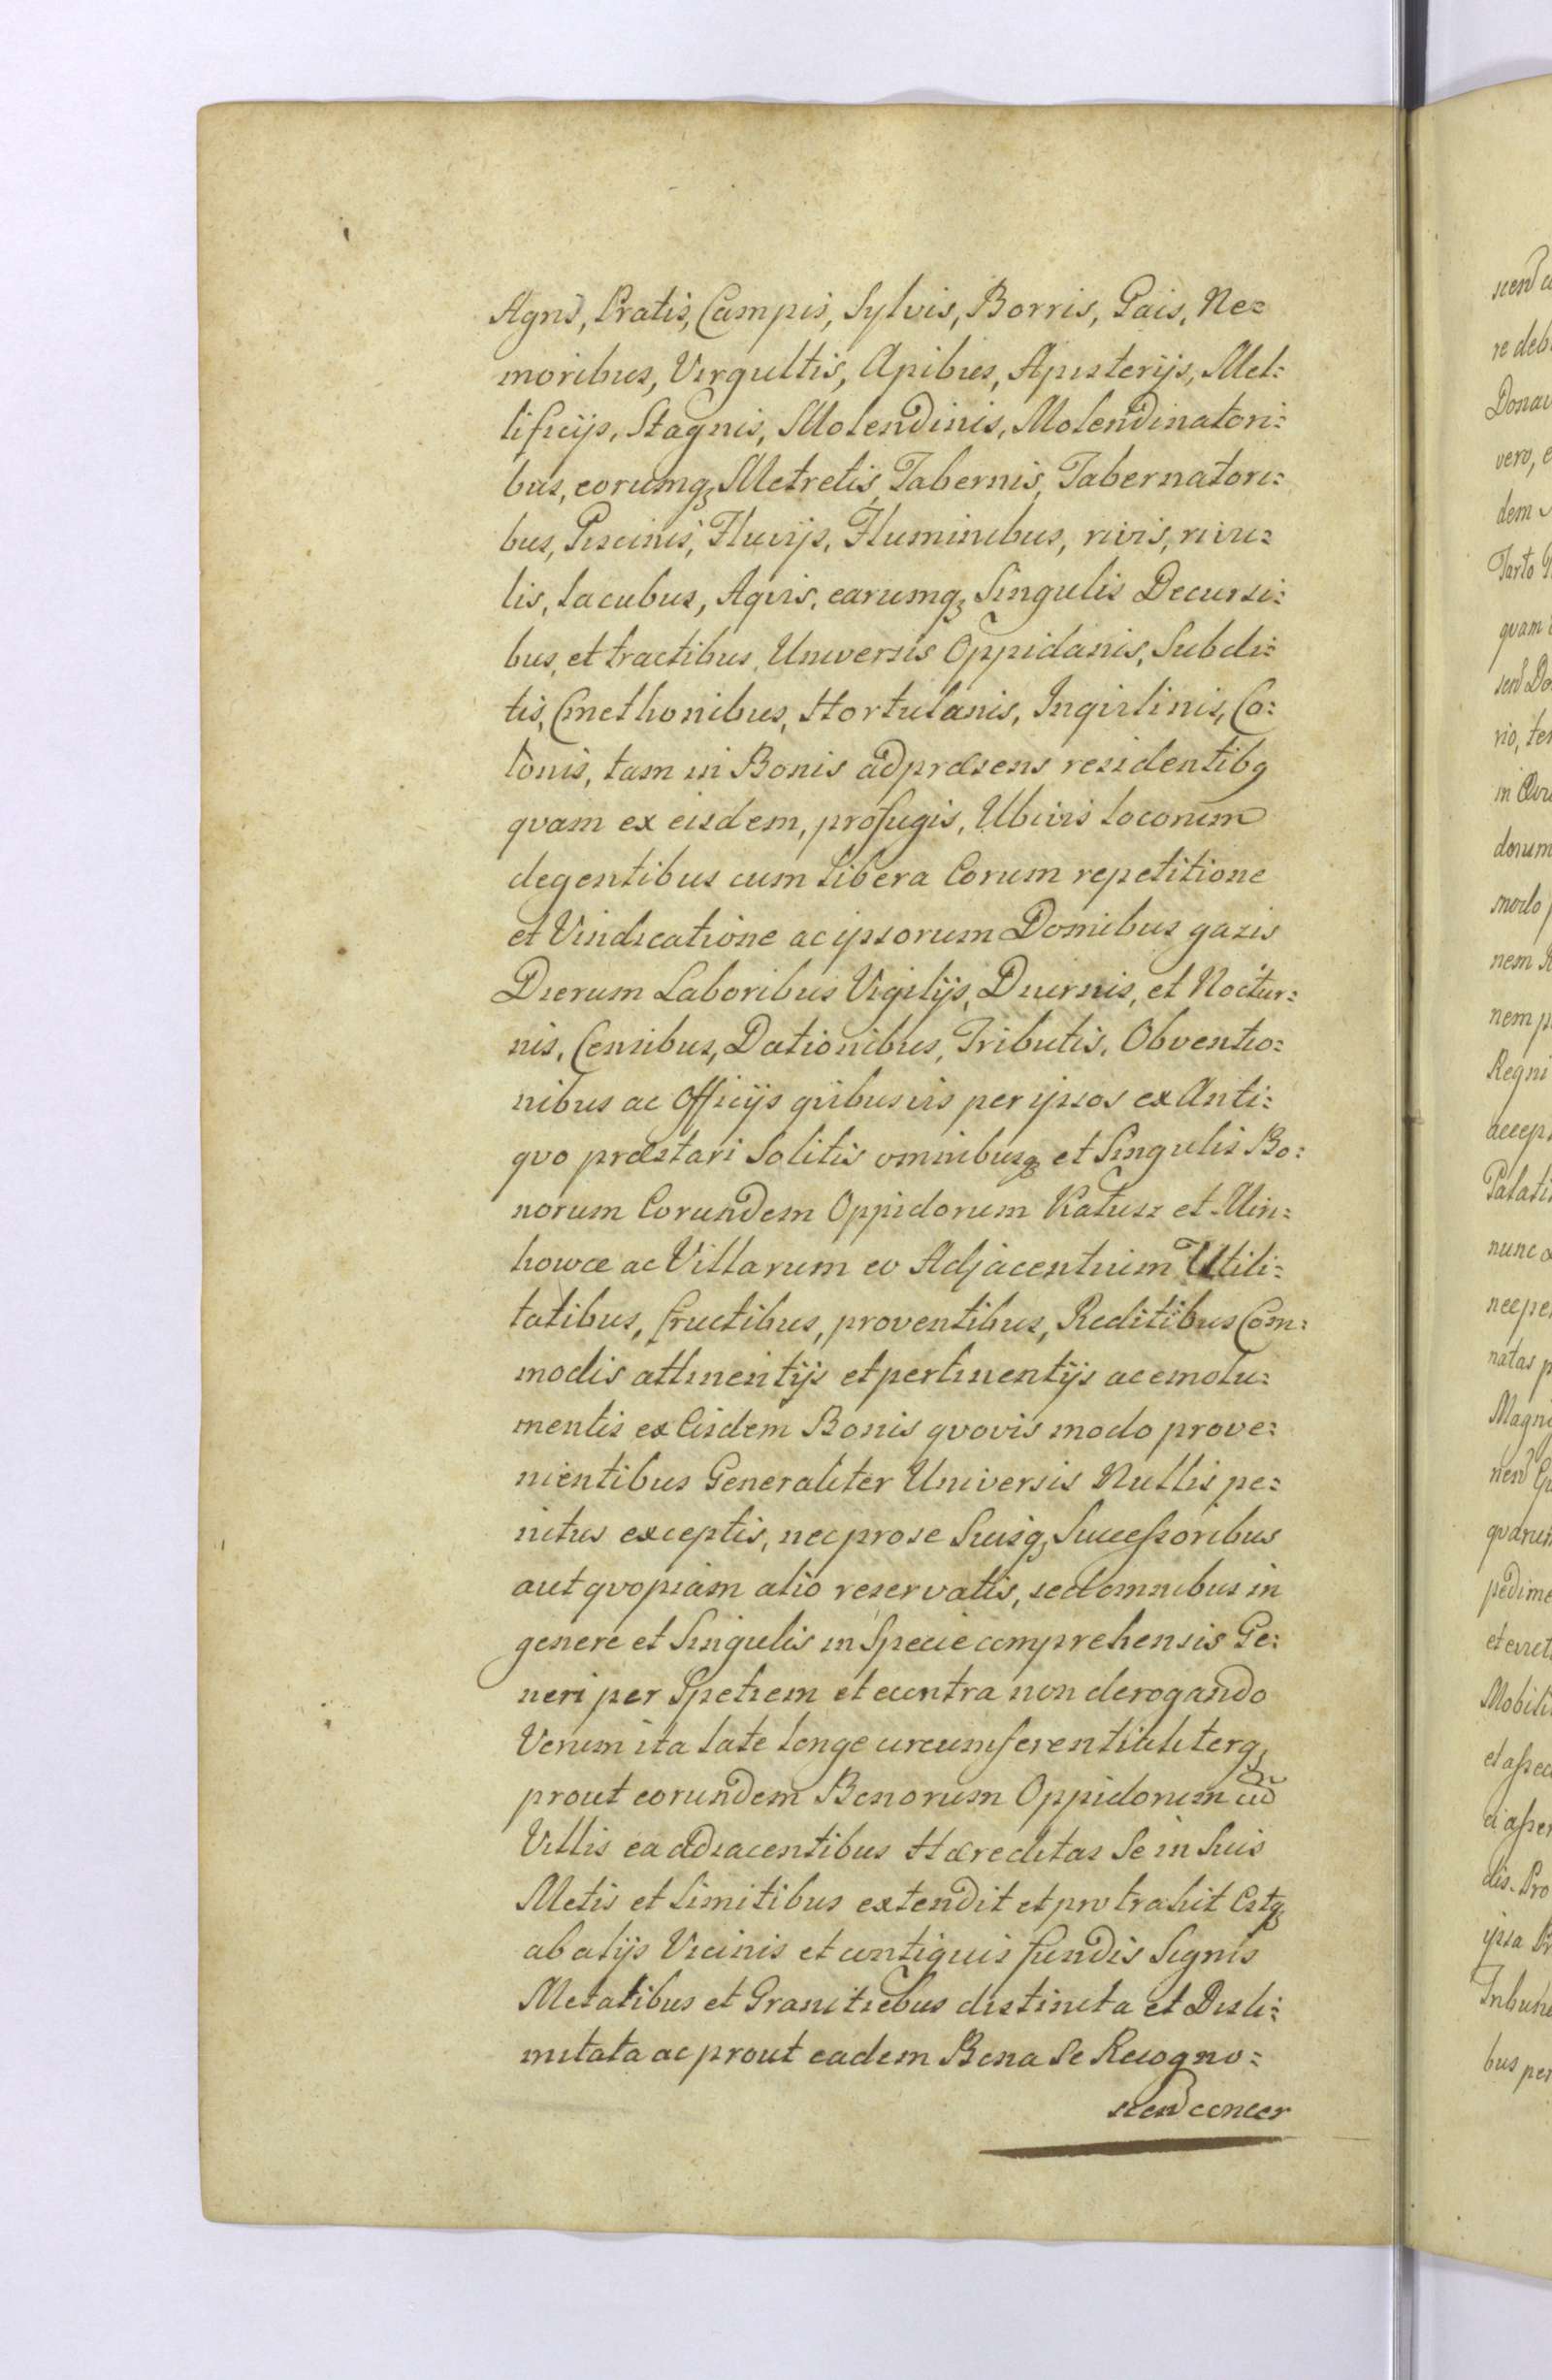 Agris, Pratis, Campis, Sylvis, Borris, Gais, Ne=
moribus, Virgultis, Apibus, Apisterijs, Mel:
lificijs, Stagnis, Molendinis, Molendinatori:
bus, eorumq₃ Metretis, Tabernis, Tabernatori:
bus, Piscinis, Fluvijs, Fluminibus, rivis, rivu=
lis, lacubus, Aqvis, earumq₃ Singulis Decursi:
bus, et tractibus, Universis Oppidanis, Subdi:
tis, Cmethonibus, Hortulanis, Inqvilinis, Co:
lonis, tam in Bonis ad præsens residentibq
qvam ex eisdem, profugis, Ubivis locorum
degentibus cum libera Eorum repetitione
et Vindicatione ac ipsorum Domibus gazis
Dierum Laboribus Vigilijs, Diurnis, et Noctur:
nis, Censibus, Dationibus, Tributis, Obventio:
nibus ac Officijs qvibusvis per ipsos ex Anti:
qvo præstari Solitis omnibusq₃ et Singulis Bo:
norum Eorundem Oppidorum Katusz et Min:
howce ac Villarum eo Adjacentium Utili:
tatibus, fructibus, proventibus, Reditibus Com:
modis attinentijs et pertinentijs ac emolu:
mentis ex Eisdem Bonis qvovis modo prove:
nientibus Generaliter Universis Nullis pe:
nitus exceptis, nec pro se Suisq₃ Successoribus
aut qvopiam alio reservatis, sed omnibus in
genere et Singulis in Specie comprehensis Ge:
neri per Spetiem et econtra non derogando
Verum ita late longe circumferentialiterq₃
prout eorundem Bonorum Oppidorum cu
Villis ea adiacentibus Hæreditas Se in Suis
Metis et limitibus extendit et protrahit Estq₃
ab alijs Vicinis et contiguis fundis Signis
Metalibus et Granitiebus distincta et Disli:
mitata ac prout eadem Bona Se Recogno=
scend concer
scend
re deb
Donav
vero, e
dem
Tarto
qvam
send Do
rio, te
in
dorum
modo
nem
nem p
Regni
accep
Palati
nunc
nec pe
natas p
Magni
nend
qvarum
pedime
et evict
Mobili
et assec
ci asse
dis. Pro
ipsa
Tribuna
bus per